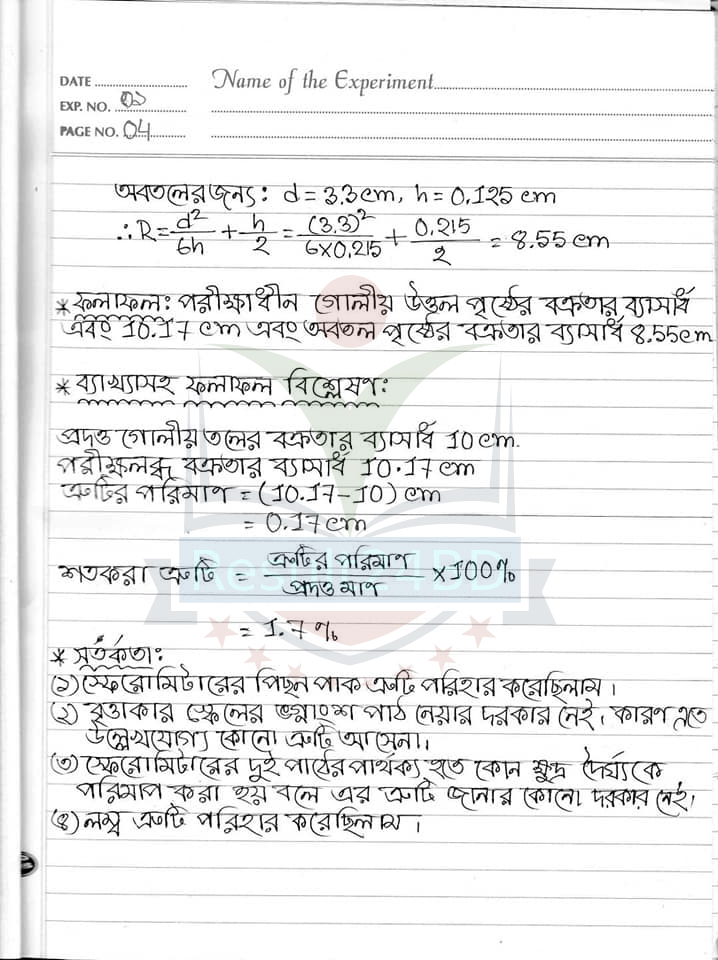 Name of the Experiment
DATE
EXP. NO. 02
PAGE NO. 04
অবতলের জন্য: d = 3.3 cm, h = 0.125 cm
∴ R = d²/6h + h/2 = (3.3)²/6×0.215 + 0.215/2 = 8.55 cm
* ফলাফল: পরীক্ষাধীন গোলীয় উত্তল পৃষ্ঠের বক্রতার ব্যাসার্ধ
এবং 10.17 cm এবং অবতল পৃষ্ঠের বক্রতার ব্যাসার্ধ 8.55 cm
* ব্যাখ্যাসহ ফলাফল বিশ্লেষণ:
প্রদত্ত গোলীয় তলের বক্রতার ব্যাসার্ধ 10 cm.
পরীক্ষালব্ধ বক্রতার ব্যাসার্ধ 10.17 cm
ত্রুটির পরিমাণ = (10.17-10) cm
= 0.17 cm
শতকরা ত্রুটি = ত্রুটির পরিমাণ/প্রদত্ত মাণ × 100%
Results4BD
= 1.7 %
* সতর্কতা:
(১) স্ফেরোমিটারের পিছন পাক ত্রুটি পরিহার করেছিলাম।
(২) বৃত্তাকার স্কেলের ভগ্নাংশ পাঠ নেয়ার দরকার নেই। কারণ এতে
উল্লেখযোগ্য কোনো ত্রুটি আসেনা।
(৩) স্ফেরোমিটারের দুই পাঠের পার্থক্য হতে কোন ক্ষুদ্র দৈর্ঘ্যকে
পরিমাপ করা হয় বলে এর ত্রুটি জানার কোনো দরকার নেই।
(৪) লম্ব ত্রুটি পরিহার করেছিলাম।